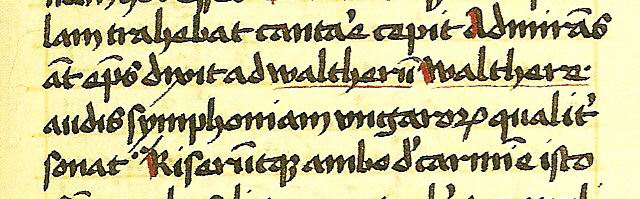 lam trahebat canta᷒e cepit Admirās
āt ep̄s dixit ad waltherū walthere·
audis symphoniam ungaroꝝ qualit᷒
sonat· Riserūtqꝫ ambo d᷒ carmīe isto